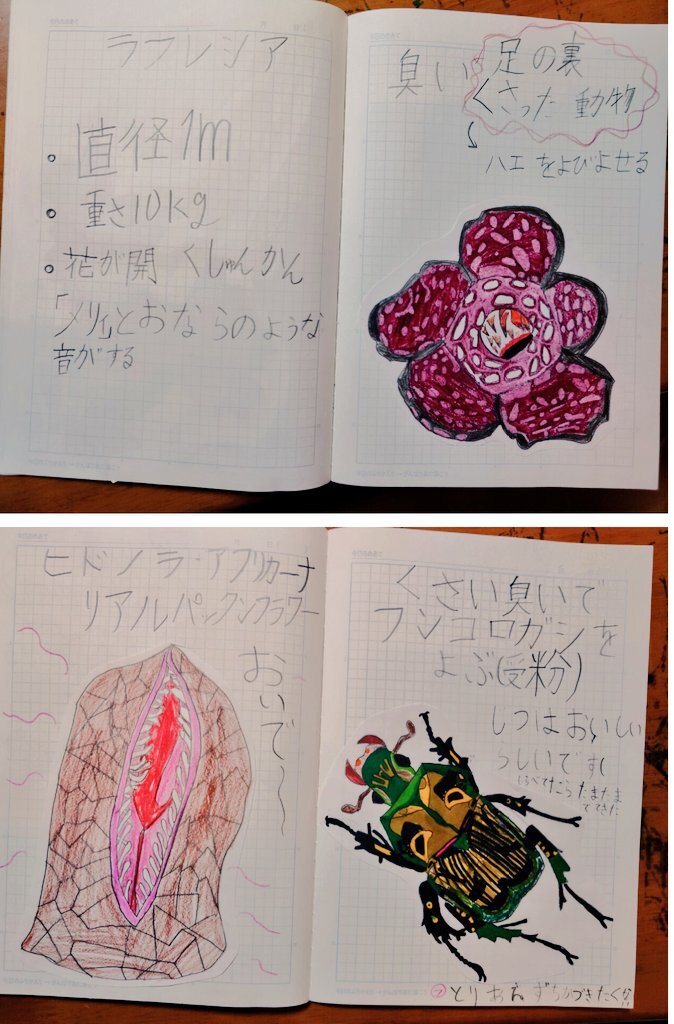 ラフレシア
直径1m
重さ10kg
花が開くしゅんかん
「メリィ」とおならのような
音がする
臭い
足の裏
くさった動物
ハエをよびよせる
ヒドノラ・アフリカーナ
リアルパックンフラワー
おいで〜
くさい臭いで
フンコロガシを
よぶ(受粉)
じつはおいしい
らしいです(
しらべてたらたまたま
でてきた
とりあえずちかづきたくな